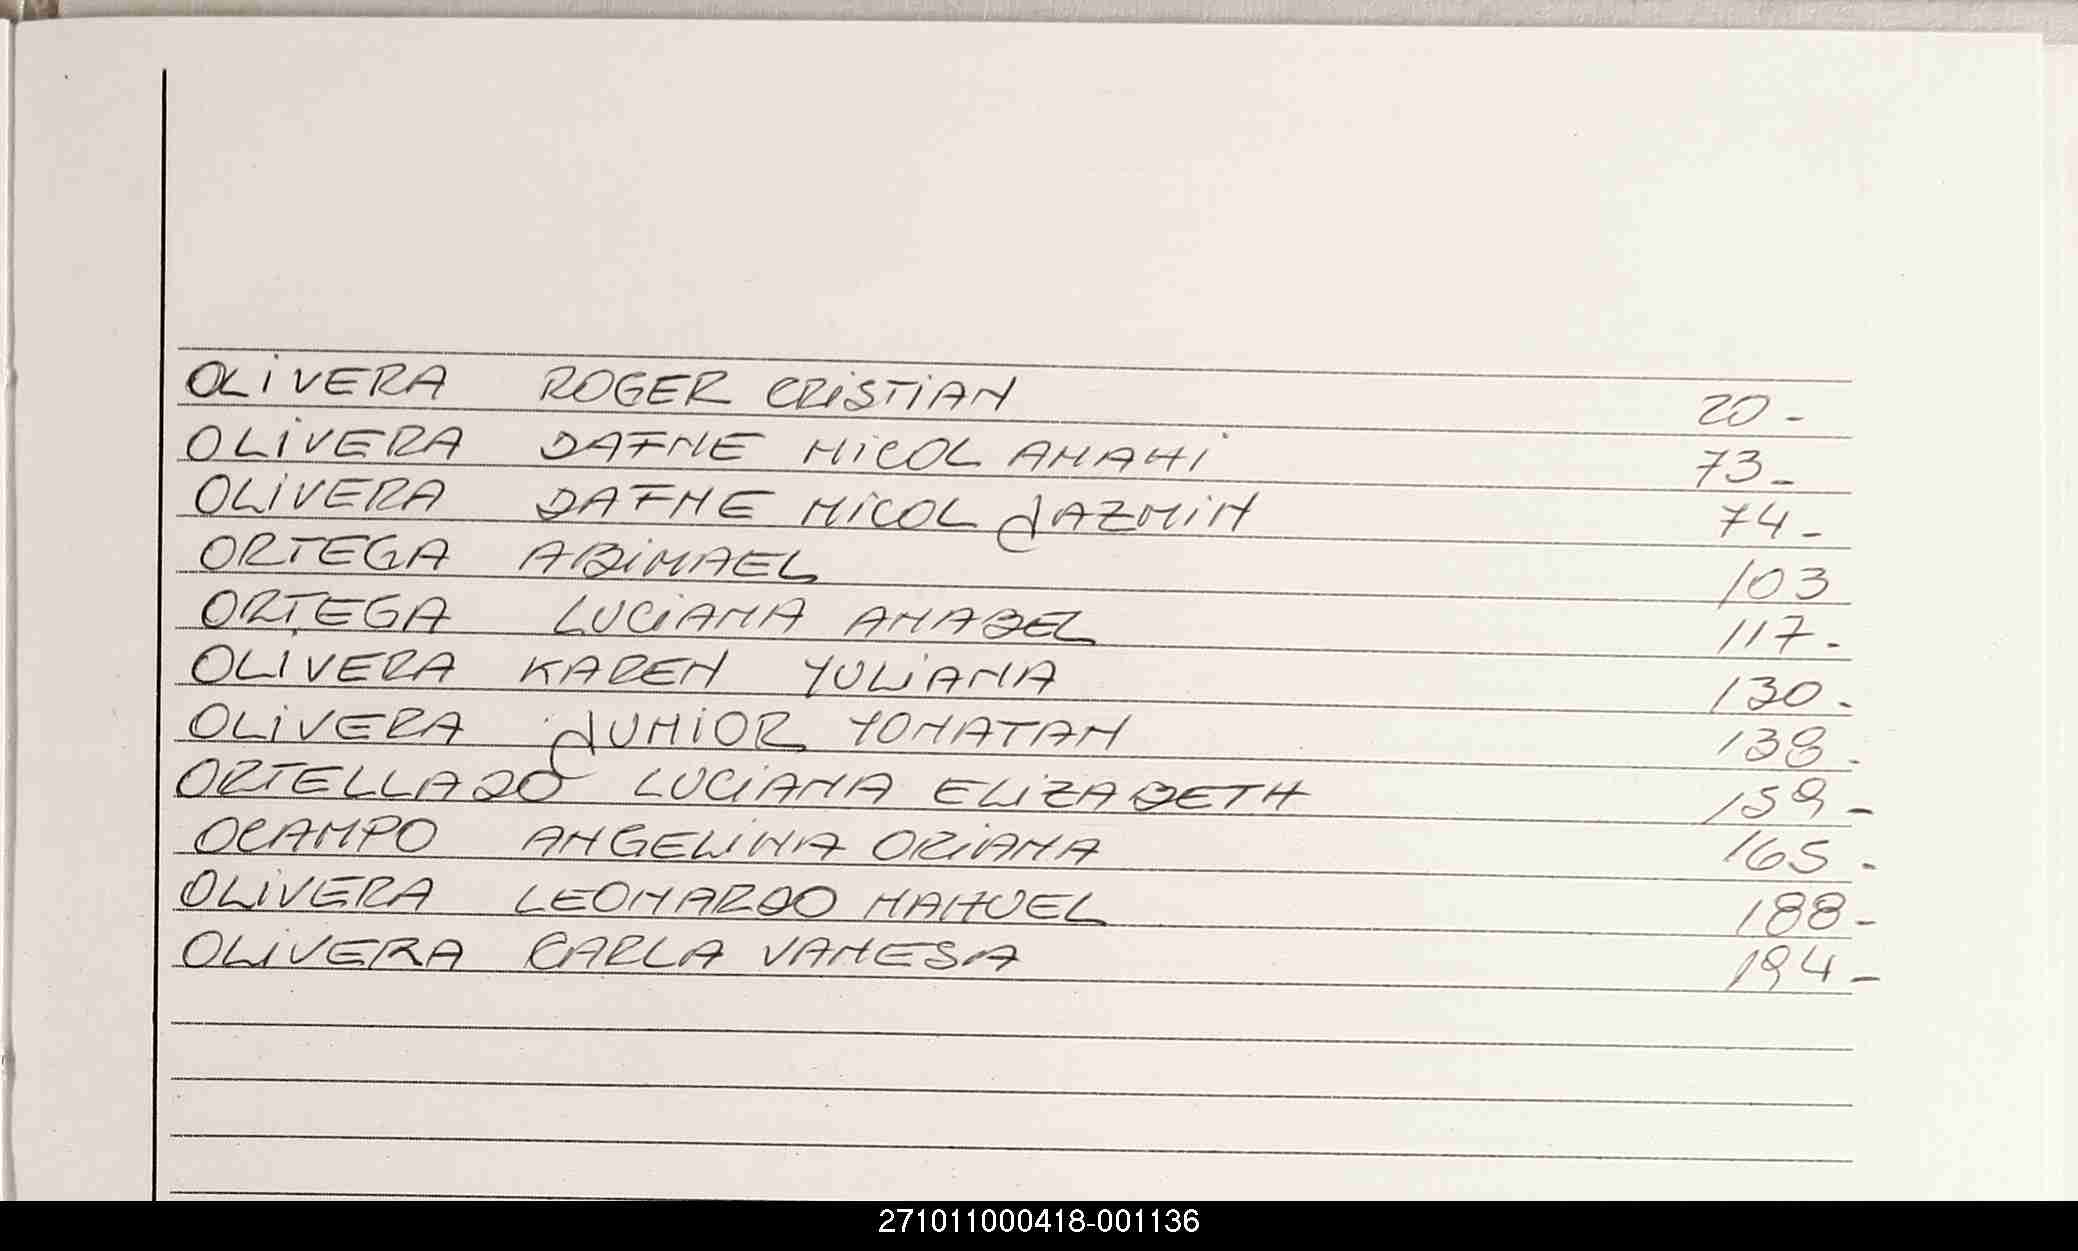 OLIVERA ROGER CRISTIAN 20-
OLIVERA DAFNE NICOL ANAHI 73-
OLIVERA DAFNE NICOL JAZMIN 74-
ORTEGA ABIMAEL 103
ORTEGA LUCIANA ANABEL 117-
OLIVERA KAREN YULIANA 130-
OLIVERA JUNIOR YONATAN 138-
ORTELLADO LUCIANA ELIZABETH 159-
OCAMPO ANGELINA ORIANA 165-
OLIVERA LEONARDO NAHUEL 188-
OLIVERA CARLA VANESA 194-
271011000418-001136